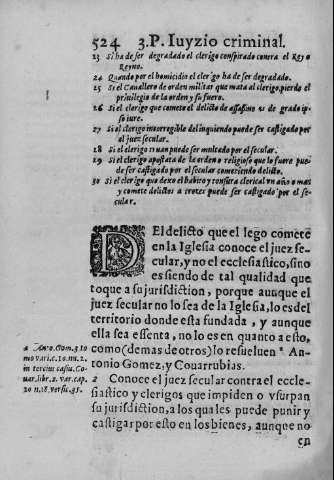 524 3.P. Iuyzio criminal.
23 Si ha de ser degradado el clerigo conspirado contra el Rey o
Reyno.
24 Quando por el homicidio el clerigo ha de ser degradado.
25 Si el Cauallero de orden militar que mata al clerigo, pierde el
priuilegio de la orden y su fuero.
26 Si el clerigo que comete el delicto de assasino es de grado ip-
so iure.
27 Si el clerigo incorregible delinquiendo puede ser castigado por
el juez secular.
28 Si el clerigo rufian puede ser multado por el secular.
29 Si el clerigo apostata de la orden o religioso que lo fuere pue
de ser castigado por el secular cometiendo delicto.
30 Si el clerigo que dexo el habito y tonsura clerical vn año o mas
y comete delictos atrozes puede ser castigado por el se-
cular.
DEl delicto que el lego comete
en la Iglesia conoce el juez se-
cular, y no el ecclesiastico, sino
es siendo de tal qualidad que
toque a su jurisdiction, porque aunque el
juez secular no lo sea de la Iglesia, lo es del
territorio donde esta fundada, y aunque
ella sea essenta, no lo es en quanto a esto,
como (demas de otros) lo resueluen a An-
tonio Gomez, y Couarrubias.
a Anto. Gom. 3 to
mo vari. c. 10. nu. 2.
in tertius casu. Co-
uar. libr. 2. var. cap.
20 n. 18. versu. 35.
2 Conoce el juez secular contra el eccle-
siastico y clerigos que impiden o vsurpan
su jurisdiction, a los quales puede punir y
castigar por esto en los bienes, aunque no
en